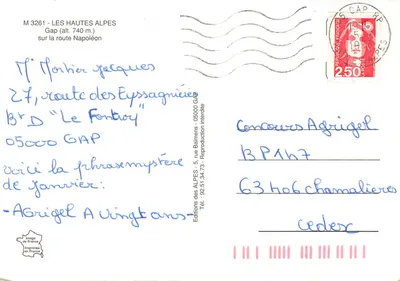 M 3261 - LES HAUTES ALPES
Gap (alt. 740 m.)
sur la route Napoléon
Mr Mortier Jacques
27, route des Eyssagnières
Bt D "Le Fontroy"
05000 GAP
voici la phrase mystère
de janvier:
- AGRIGEL A vingt ans -
Image
de France
Imprimée
en France
Editions des ALPES - 5, rue Balmens - 05000 GAP
Tél. : 92.51.34.73 - Reproduction interdite
05 GAP RP
2,50
Concours Agrigel
BP147
63406 Chamalières
cedex